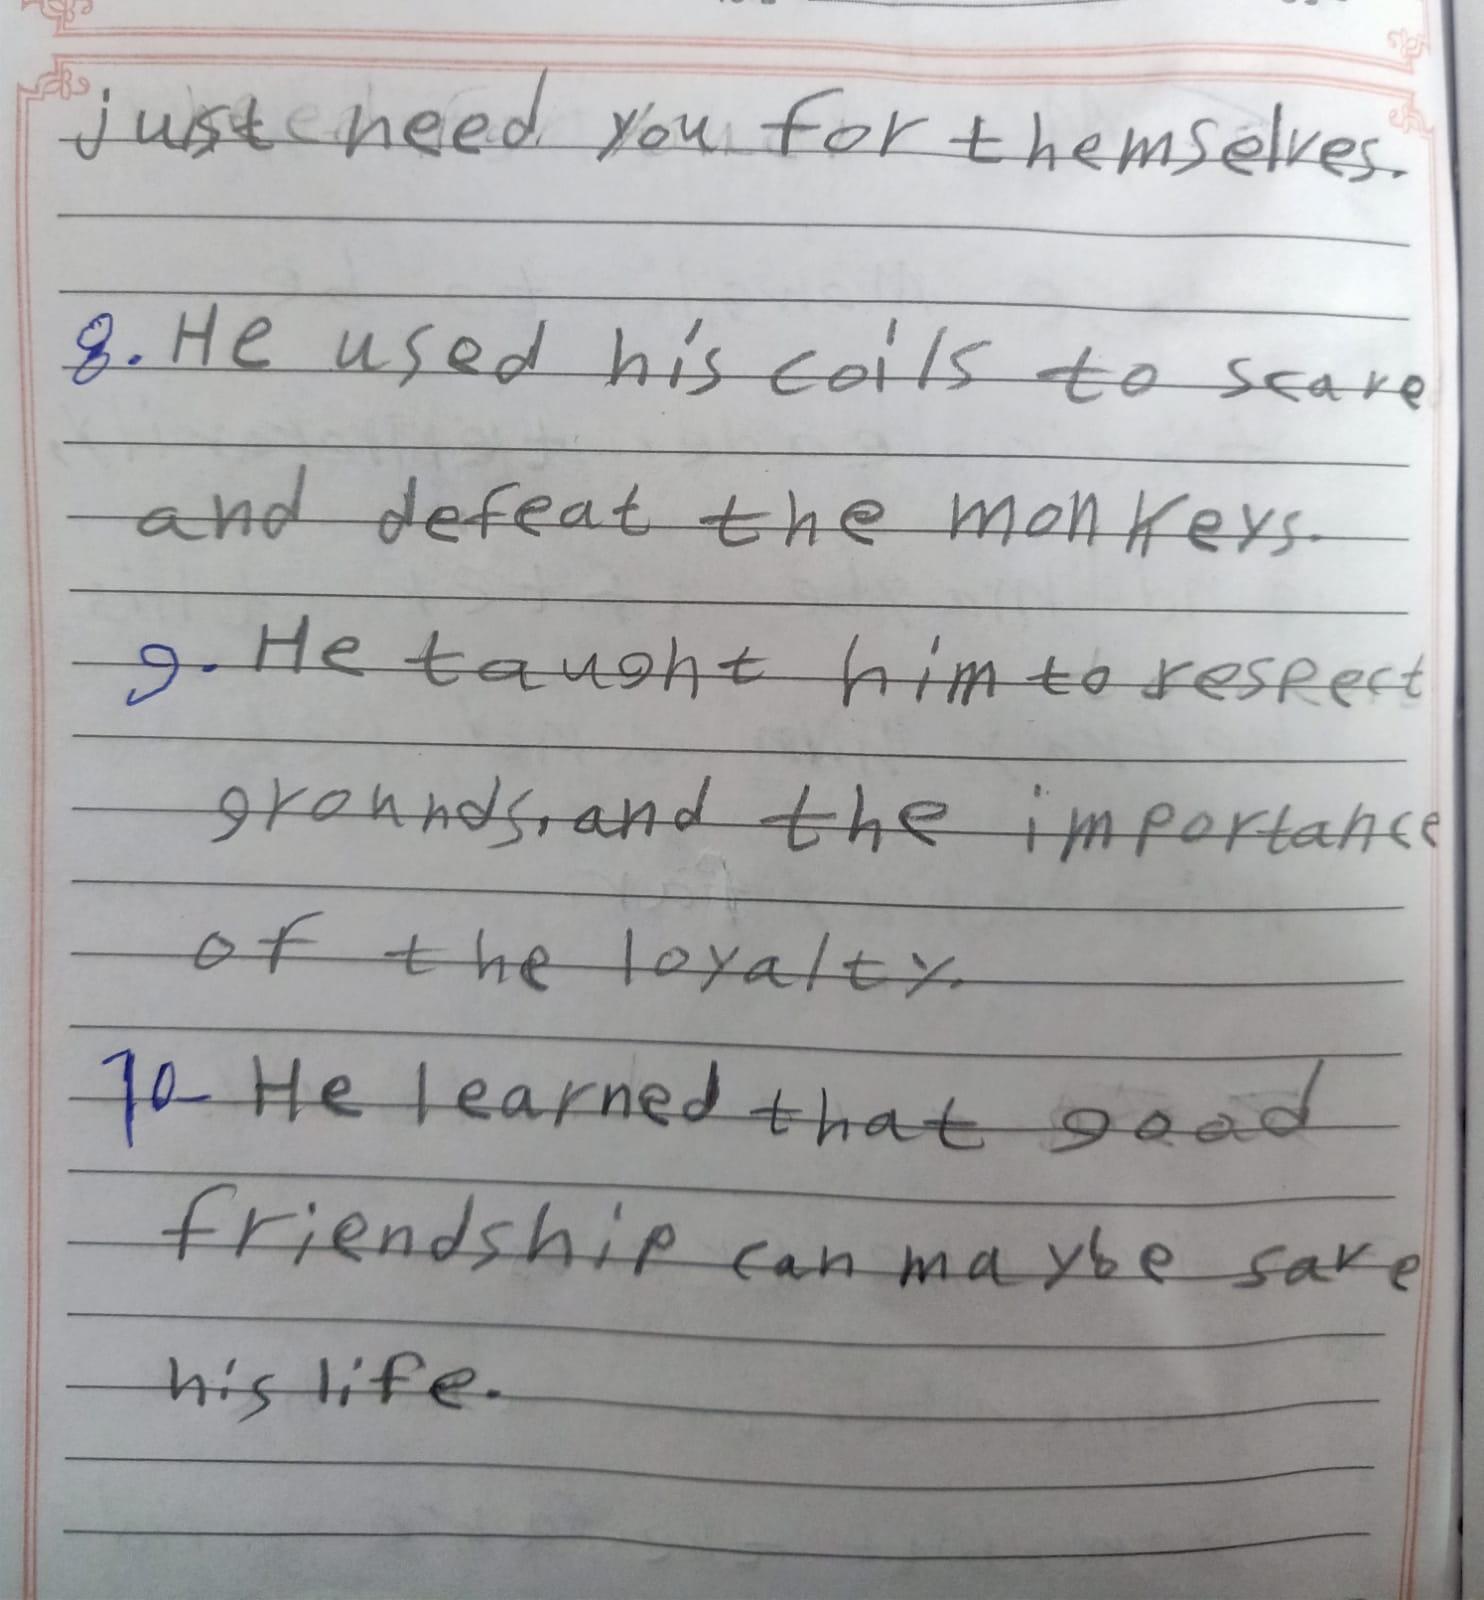 just need you for themselves.
8. He used his coils to scare
and defeat the monkeys.
9. He taught him to respect
grounds, and the importance
of the loyalty.
10- He learned that good
friendship can maybe save
his life.